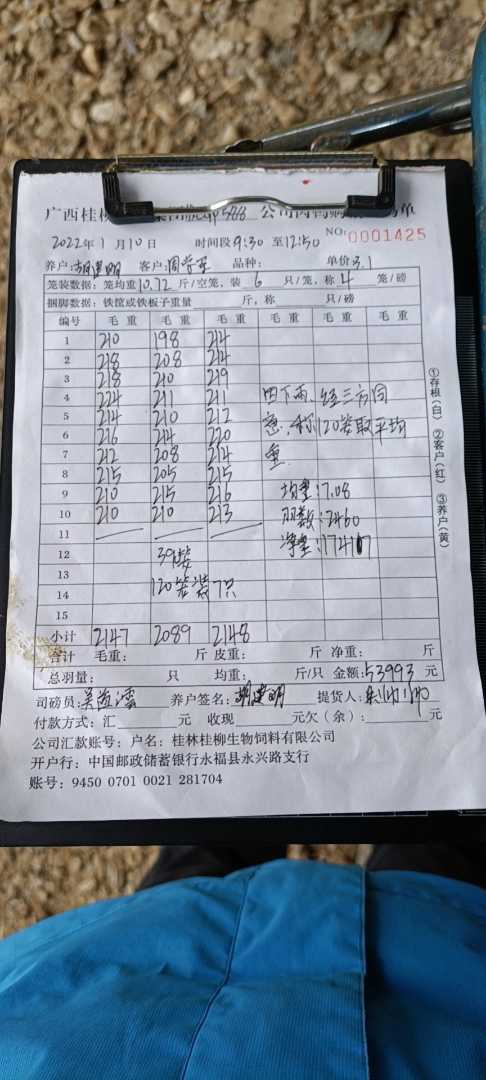 广西桂柳 588 公司肉鸭购 单
NO: 0001425
2022年1月10日 时间段9:30至12:50
养户:胡建明 客户:周 品种: 单价3.1
笼装数据:笼均重10.72斤/空笼,装6只/笼,称4笼/磅
捆脚数据:铁筐或铁板子重量 斤,称 只/磅
编号 毛重 毛重 毛重 毛重 毛重 毛重
1 210 198 214
2 218 208 214
3 218 210 219
4 224 211 211 因下雨、经三方同
5 214 210 212 意,称120笼取平均
6 216 214 220 重
7 212 208 214
8 215 205 215
9 210 215 216 均重:7.08
10 210 210 213 羽数:2460
11 净重:17417
12 39笼
13
14 120笼装7只
15
小计 2147 2089 2148
合计 毛重: 斤 皮重: 斤 净重: 斤
总羽量: 只 均重: 斤/只 金额:53993元
司磅员: 养户签名:胡建明 提货人:
付款方式:汇 元 收现 元欠(余): 元
公司汇款账号:户名:桂林桂柳生物饲料有限公司
开户行:中国邮政储蓄银行永福县永兴路支行
账号:9450 0701 0021 281704
①存根(白) ②客户(红) ③养户(黄)